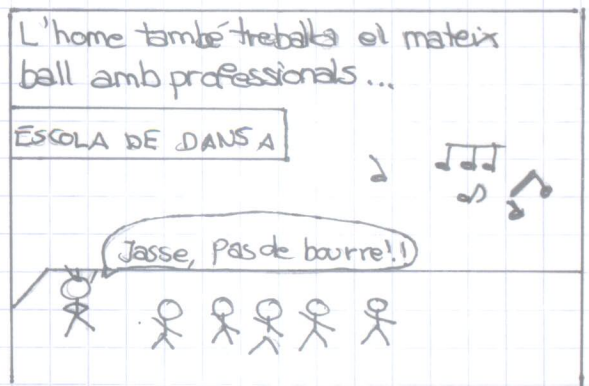 L'home també treballa el mateix
ball amb professionals...
ESCOLA DE DANSA
Jasse, pas de bourre!!